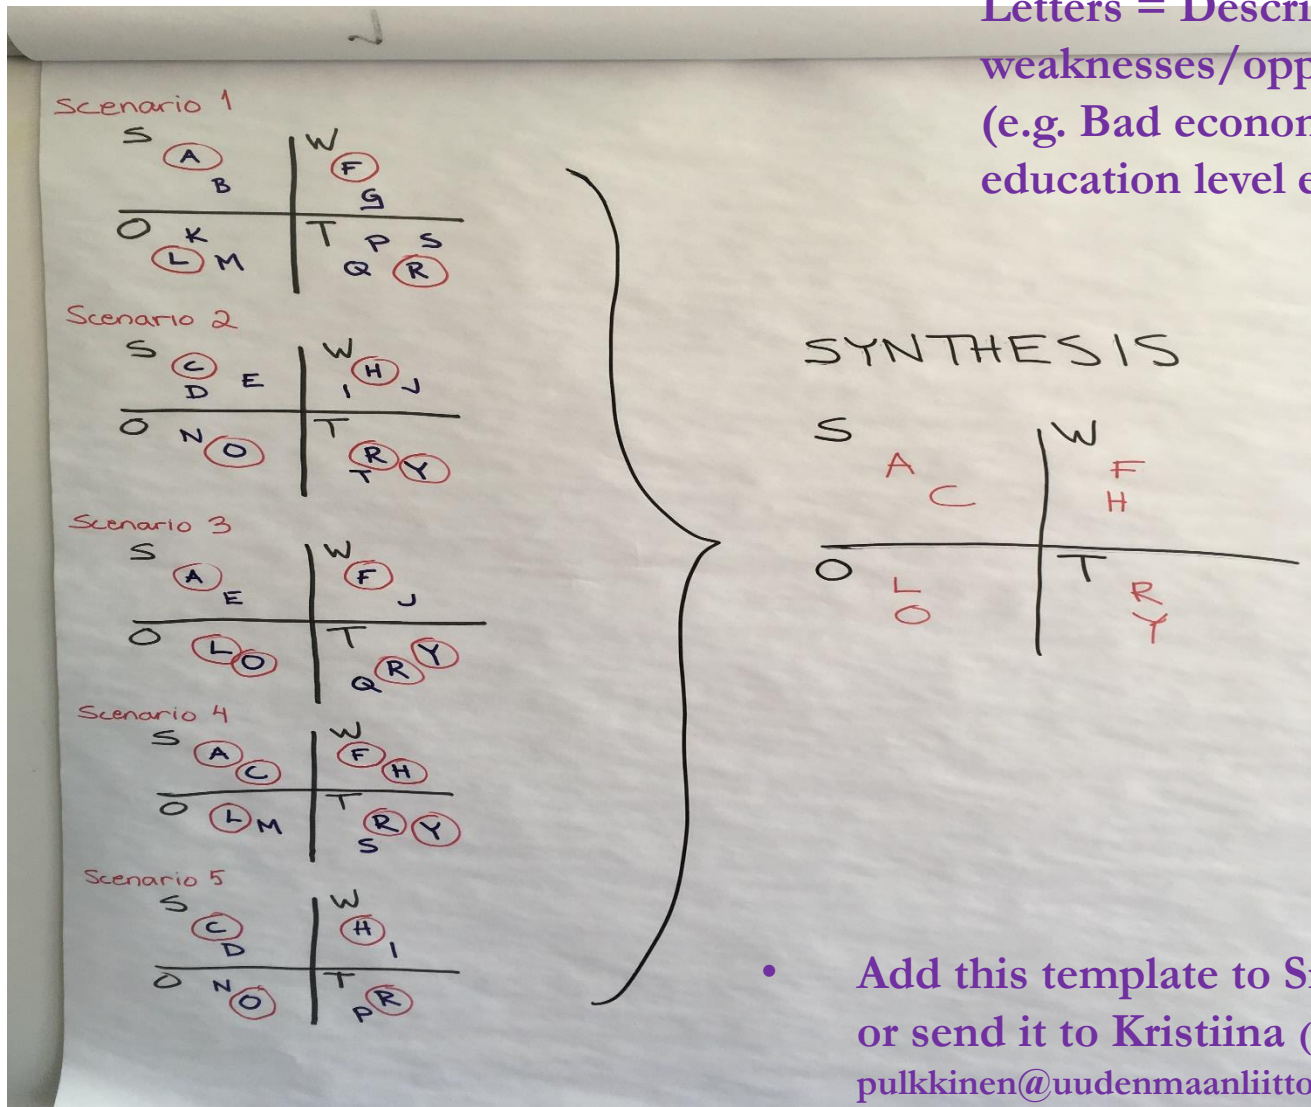 Letters = Descri
weaknesses/opp
(e.g. Bad econor
education level e
Scenario 1
S W
A F
B G
O K T P S
L M Q R
Scenario 2
S W
C H
D E I J
O N T
O R Y
T
Scenario 3
S W
A F
E J
O T
L O Q R Y
Scenario 4
S W
A C F H
O T
L M R Y
S
Scenario 5
S W
C H
D I
O N T
O P R
SYNTHESIS
S W
A F
C H
O L T R
O Y
• Add this template to S
or send it to Kristiina (
pulkkinen@uudenmaanliitto